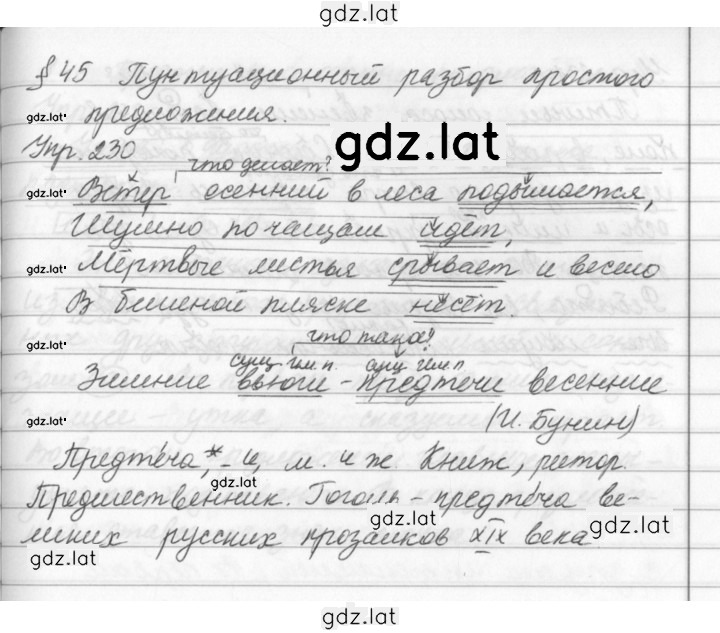 gdz.lat
§ 45 Пунктуационный разбор простого
gdz.lat предложения.
Упр. 230 gdz.lat
что делает?
gdz.lat Ветер осенний в леса подымается,
Шумно по чащам идёт,
gdz.lat Мёртвые листья срывает и весело
В бешеной пляске несёт.
gdz.lat что такое?
сущ. им. п. сущ. им. п.
Зимние вьюги - предтечи весенние
gdz.lat (И. Бунин)
Предте́ча,* -и, м. и ж. Книж, ритор.
gdz.lat
Предшественник. Гоголь - предте́ча ве-
gdz.lat gdz.lat
ликих русских прозаиков XIX века
gdz.lat
gdz.lat